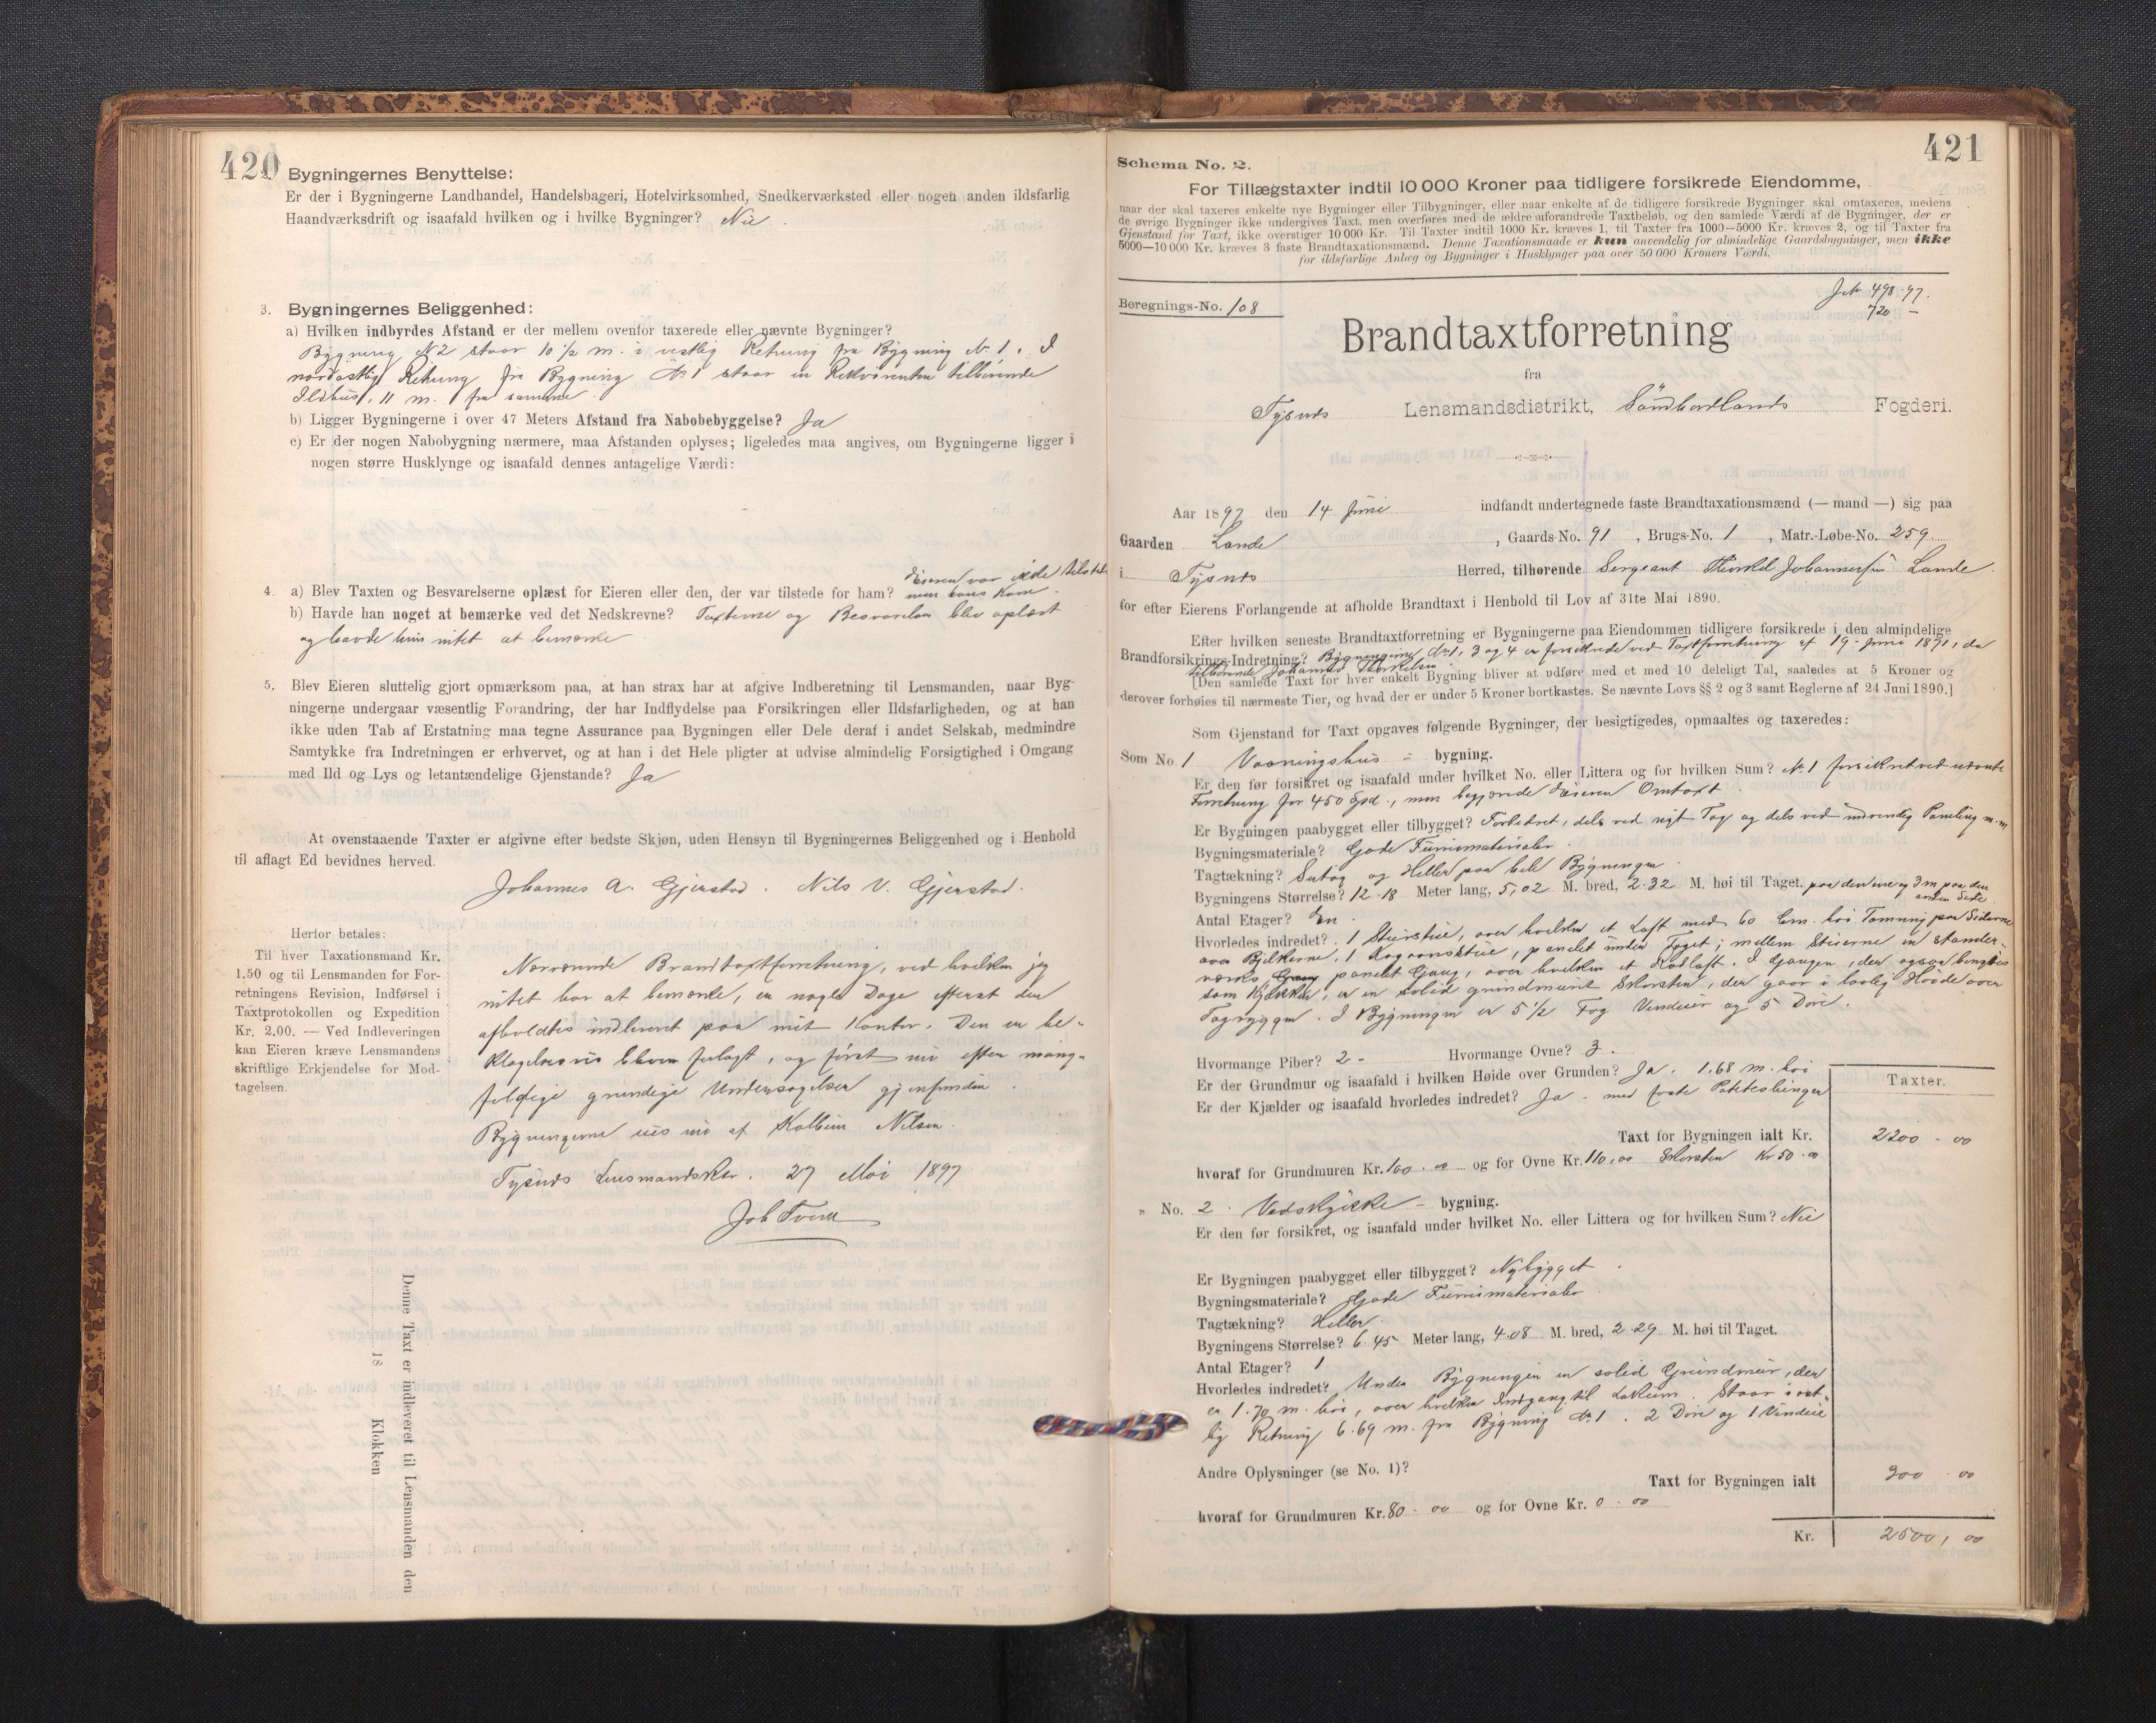 420
Bygningernes Benyttelse:
Er der i Bygningerne Landhandel, Handelsbageri, Hotelvirksomhed, Snedkerværksted eller nogen anden ildsfarlig
Haandværksdrift og isaafald hvilken og i hvilke Bygninger? Nei.
3. Bygningernes Beliggenhed:
a) Hvilken indbyrdes Afstand er der mellem ovenfor taxerede eller nævnte Bygninger?
Bygning No 2 staar 10 1/2 m. i vestlig Retning fra Bygning No 1. I
nordostlig Retning fra Bygning No 1 staar en Rekvirenten tilhørende
Ildhus, 11 m. fra samme.
b) Ligger Bygningerne i over 47 Meters Afstand fra Nabobebyggelse? Ja
c) Er der nogen Nabobygning nærmere, maa Afstanden oplyses; ligeledes maa angives, om Bygningerne ligger i
nogen større Husklynge og isaafald dennes antagelige Værdi:
Eieren var ikke tilstede
4. a) Blev Taxten og Besvarelserne oplæst for Eieren eller den, der var tilstede for ham? men hans Kone.
b) Havde han noget at bemærke ved det Nedskrevne? Taxterne og Besvarelsen blev oplæst
og havde hun intet at bemærke
5. Blev Eieren sluttelig gjort opmærksom paa, at han strax har at afgive Indberetning til Lensmanden, naar Byg-
ningerne undergaar væsentlig Forandring, der har Indflydelse paa Forsikringen eller Ildsfarligheden, og at han
ikke uden Tab af Erstatning maa tegne Assurance paa Bygningen eller Dele deraf i andet Selskab, medmindre
Samtykke fra Indretningen er erhvervet, og at han i det Hele pligter at udvise almindelig Forsigtighed i Omgang
med Ild og Lys og letantændelige Gjenstande? Ja
At ovenstaaende Taxter er afgivne efter bedste Skjøn, uden Hensyn til Bygningernes Beliggenhed og i Henhold
til aflagt Ed bevidnes herved.
Johannes A. Gjerstad. Nils V. Gjerstad.
Herfor betales:
Til hver Taxationsmand Kr.
1.50 og til Lensmanden for For-
retningens Revision, Indførsel i
Taxtprotokollen og Expedition
Kr. 2.00. — Ved Indleveringen
kan Eieren kræve Lensmandens
skriftlige Erkjendelse for Mod-
tagelsen.
Nærværende Brandtaxtforretning, ved hvilken jeg
intet har at bemærke, er nogle Dage efterat den
afholdtes indleveret paa mit Kontor. Den er be-
klageligvis bleven forlagt, og først nu efter mang-
foldige grundige Undersøgelser gjenfunden.
Bygningerne eies nu af Kolbein Nilsen.
Tysnes Lensmandsktr. 27 Mai 1897
Job Tveit
Denne Taxt er indleveret til Lensmanden den
18 Klokken
421
Schema No. 2.
For Tillægstaxter indtil 10 000 Kroner paa tidligere forsikrede Eiendomme,
naar der skal taxeres enkelte nye Bygninger eller Tilbygninger, eller naar enkelte af de tidligere forsikrede Bygninger skal omtaxeres, medens
de øvrige Bygninger ikke undergives Taxt, men overføres med de ældre uforandrede Taxtbeløb, og den samlede Værdi af de Bygninger, der er
Gjenstand for Taxt, ikke overstiger 10 000 Kr. Til Taxter indtil 1000 Kr. kræves 1, til Taxter fra 1000—5000 Kr. kræves 2, og til Taxter fra
5000—10 000 Kr. kræves 3 faste Brandtaxationsmænd. Denne Taxationsmaade er kun anvendelig for almindelige Gaardsbygninger, men ikke
for ildsfarlige Anlæg og Bygninger i Husklynger paa over 50 000 Kroners Værdi.
498-97.
720 -
Beregnings-No. 108
Brandtaxtforretning
fra
Tysnes Lensmandsdistrikt, Søndhordlands Fogderi.
Aar 1897 den 14 Juni indfandt undertegnede faste Brandtaxationsmænd (— mand —) sig paa
Gaarden Lande, Gaards-No. 91, Brugs-No. 1, Matr.-Løbe-No. 259.
i Tysnes Herred, tilhørende Sergeant Thorkel Johannessen Lande.
for efter Eierens Forlangende at afholde Brandtaxt i Henhold til Lov af 31te Mai 1890.
Efter hvilken seneste Brandtaxtforretning er Bygningerne paa Eiendommen tidligere forsikrede i den almindelige
Brandforsikrings-Indretning? Bygningerne No 1, 3 og 4 er forsikrede ved Taxtforretning af 19 Juni 1891, da
tilhørende Johannes Thorkelsen.
[Den samlede Taxt for hver enkelt Bygning bliver at udføre med et med 10 deleligt Tal, saaledes at 5 Kroner og
derover forhøies til nærmeste Tier, og hvad der er under 5 Kroner bortkastes. Se nævnte Lovs §§ 2 og 3 samt Reglerne af 24 Juni 1890.]
Som Gjenstand for Taxt opgaves følgende Bygninger, der besigtigedes, opmaaltes og taxeredes:
Som No. 1 Vaaningshus - bygning.
Er den før forsikret og isaafald under hvilket No. eller Littera og for hvilken Sum? No. 1 forsikret ved nævnte
Forretning for 450 Spd., men begjærede Eieren Omtaxt.
Er Bygningen paabygget eller tilbygget? Forbedret, dels ved nyt Tag og dels ved indvendig Paneling m.m.
Bygningsmateriale? Gode Furumaterialer.
Tagtækning? Sutag og Heller paa hele Bygningen.
Bygningens Størrelse? 12.18 Meter lang, 5,02 M. bred, 2.32 M. høi til Taget. paa den ene og 3 m paa den
anden Side.
Antal Etager? En.
Hvorledes indredet? 1 Stuerstue, over hvilken et Loft med 60 Cm. høi Tømring paa Siderne
over Bjelkerne, 1 Kogeovnstue, panelet under Taget; mellem Stuerne en stander-
værks Gang panelt Gang, over hvilken et Kodloft. I Gangen, der ogsaa benyttes
som Kjøkken, er en solid grundmuret Skorsten, der gaar i lovlig Høide over
Tagryggen. I Bygningen er 5 1/2 Fag Vinduer og 5 Døre.
Hvormange Piber? 2 - Hvormange Ovne? 3.
Er der Grundmur og isaafald i hvilken Høide over Grunden? Ja. 1.68 m. høi
Er der Kjælder og isaafald hvorledes indredet? Ja - med faste Potetesbinger
Taxter.
Taxt for Bygningen ialt Kr. 2200 - 00
hvoraf for Grundmuren Kr. 100.00 og for Ovne Kr. 110,00 Skorsten Kr 50.00
" No. 2. Vedskjykke - bygning.
Er den før forsikret, og isaafald under hvilket No. eller Littera og for hvilken Sum? Nei
Er Bygningen paabygget eller tilbygget? Nybygget.
Bygningsmateriale? Gode Furumaterialer.
Tagtækning? Heller.
Bygningens Størrelse? 6.45 Meter lang, 4.08 M. bred, 2.29 M. høi til Taget.
Antal Etager? 1
Hvorledes indredet? Under Bygningen en solid Grundmur, der
er 1.70 m. høi, over hvilken Indgang til Lokum. Staar i ost-
lig Retning 6.69 m. fra Bygning No 1. 2 Døre og 1 Vindue
Andre Oplysninger (se No. 1)?
Taxt for Bygningen ialt 300 - 00
hvoraf for Grundmuren Kr. 80 - 00 og for Ovne Kr. 0 - 00
Kr. 2500, 00